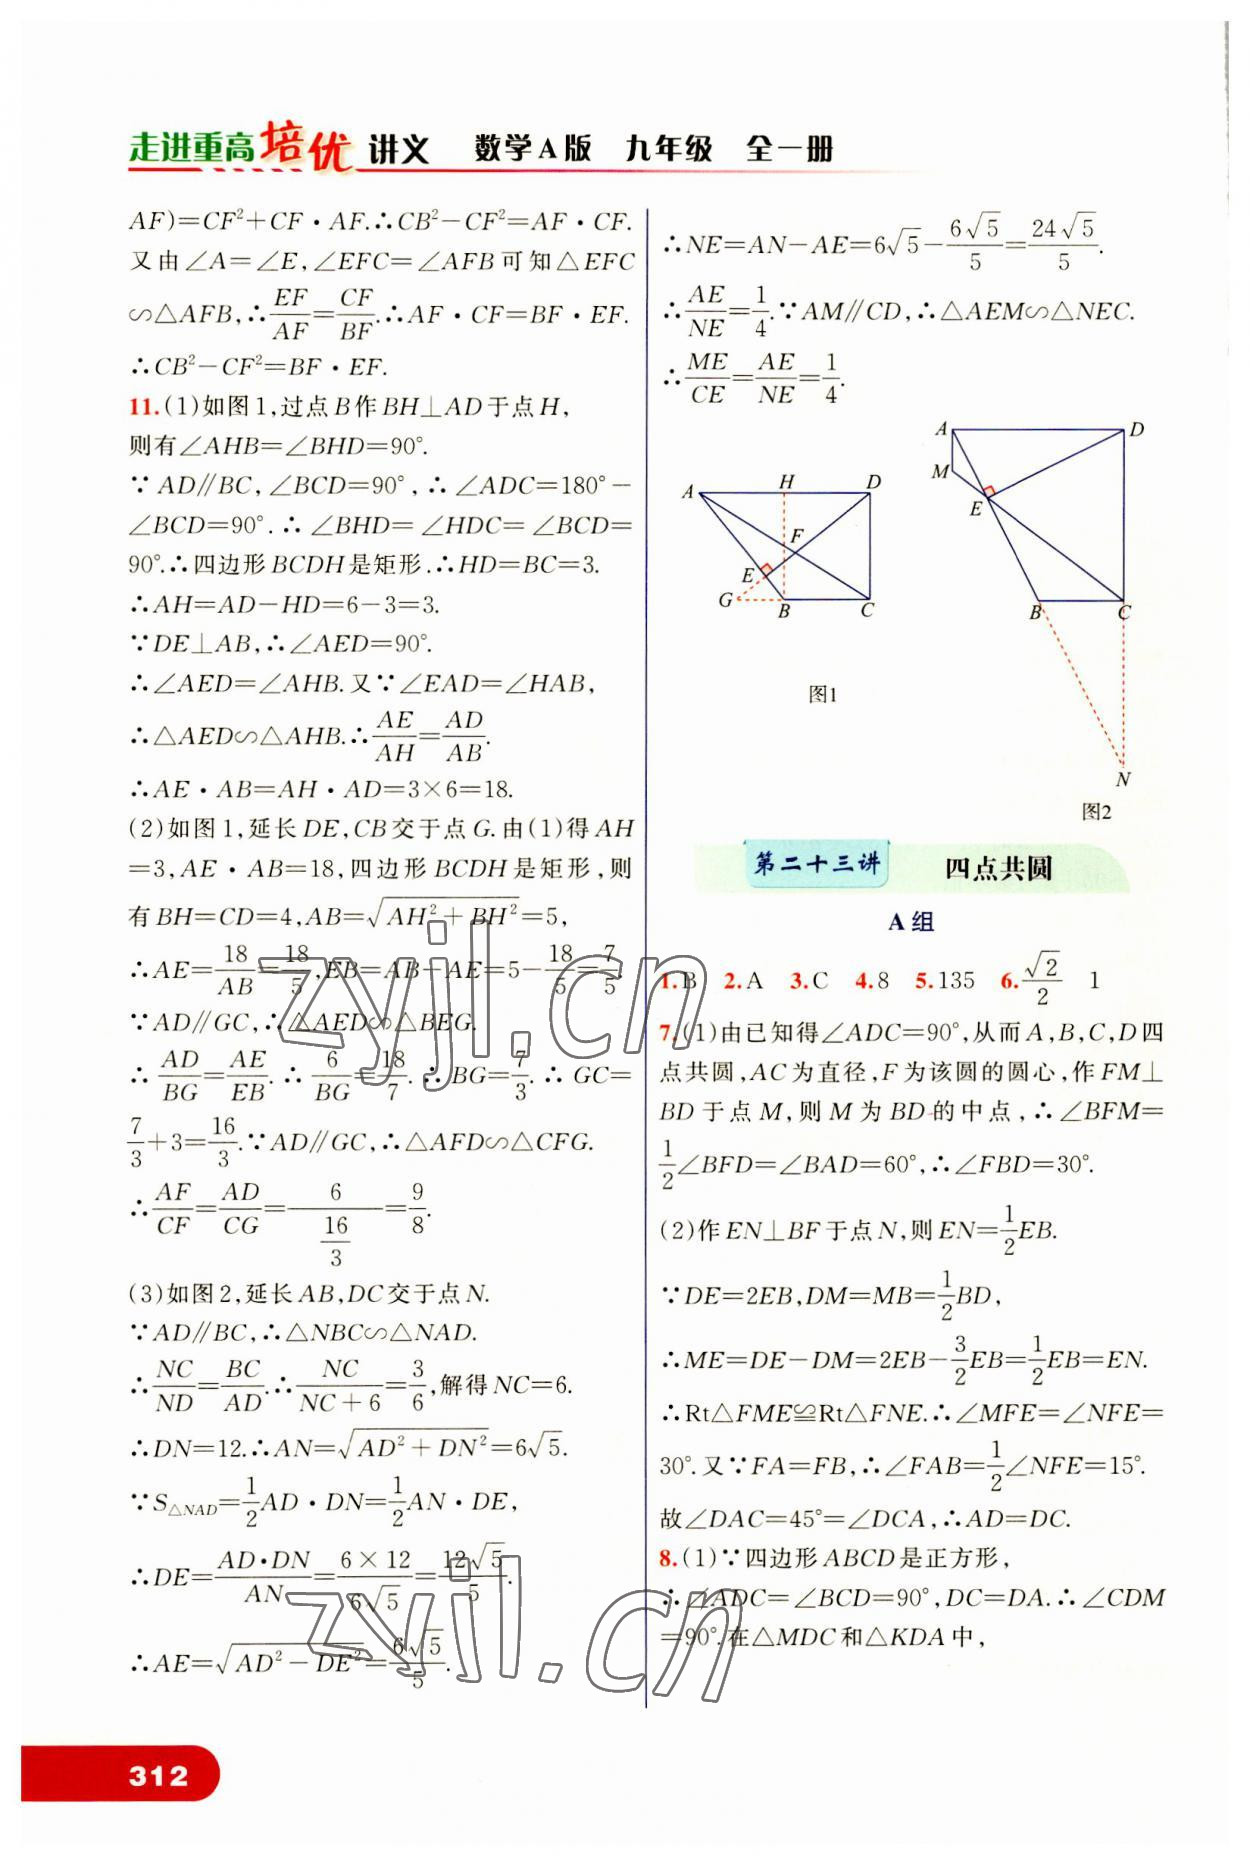 走进重高培优 讲义 数学A版 九年级 全一册
AF)=CF²+CF·AF.∴CB²-CF²=AF·CF.
又由∠A=∠E,∠EFC=∠AFB可知△EFC
∽△AFB,∴EF/AF=CF/BF.∴AF·CF=BF·EF.
∴CB²-CF²=BF·EF.
11.(1)如图1,过点B作BH⊥AD于点H,
则有∠AHB=∠BHD=90°.
∵AD∥BC,∠BCD=90°,∴∠ADC=180°-
∠BCD=90°.∴∠BHD=∠HDC=∠BCD=
90°.∴四边形BCDH是矩形.∴HD=BC=3.
∴AH=AD-HD=6-3=3.
∵DE⊥AB,∴∠AED=90°.
∴∠AED=∠AHB.又∵∠EAD=∠HAB,
∴△AED∽△AHB.∴AE/AH=AD/AB.
∴AE·AB=AH·AD=3×6=18.
(2)如图1,延长DE,CB交于点G.由(1)得AH
=3,AE·AB=18,四边形BCDH是矩形,则
有BH=CD=4,AB=√(AH²+BH²)=5,
∴AE=18/AB=18/5,EB=AB-AE=5-18/5=7/5.
∵AD∥GC,∴△AED∽△BEG.
∴AD/BG=AE/EB.∴6/BG=18/7.∴BG=7/3.∴GC=
7/3+3=16/3.∵AD∥GC,∴△AFD∽△CFG.
∴AF/CF=AD/CG=6/(16/3)=9/8.
(3)如图2,延长AB,DC交于点N.
∵AD∥BC,∴△NBC∽△NAD.
∴NC/ND=BC/AD.∴NC/(NC+6)=3/6,解得NC=6.
∴DN=12.∴AN=√(AD²+DN²)=6√5.
∵S△NAD=1/2AD·DN=1/2AN·DE,
∴DE=AD·DN/AN=6×12/6√5=12√5/5.
∴AE=√(AD²-DE²)=6√5/5.
∴NE=AN-AE=6√5-6√5/5=24√5/5.
∴AE/NE=1/4.∵AM∥CD,∴△AEM∽△NEC.
∴ME/CE=AE/NE=1/4.
A H D F E G B C
图1
A D M E B C N
图2
第二十三讲 四点共圆
A组
1.B 2.A 3.C 4.8 5.135 6.√2/2 1
7.(1)由已知得∠ADC=90°,从而A,B,C,D四
点共圆,AC为直径,F为该圆的圆心,作FM⊥
BD于点M,则M为BD的中点,∴∠BFM=
1/2∠BFD=∠BAD=60°,∴∠FBD=30°.
(2)作EN⊥BF于点N,则EN=1/2EB.
∵DE=2EB,DM=MB=1/2BD,
∴ME=DE-DM=2EB-3/2EB=1/2EB=EN.
∴Rt△FME≌Rt△FNE.∴∠MFE=∠NFE=
30°.又∵FA=FB,∴∠FAB=1/2∠NFE=15°.
故∠DAC=45°=∠DCA,∴AD=DC.
8.(1)∵四边形ABCD是正方形,
∴∠ADC=∠BCD=90°,DC=DA.∴∠CDM
=90°.在△MDC和△KDA中,
312
zyjl.cn
zyjl.cn